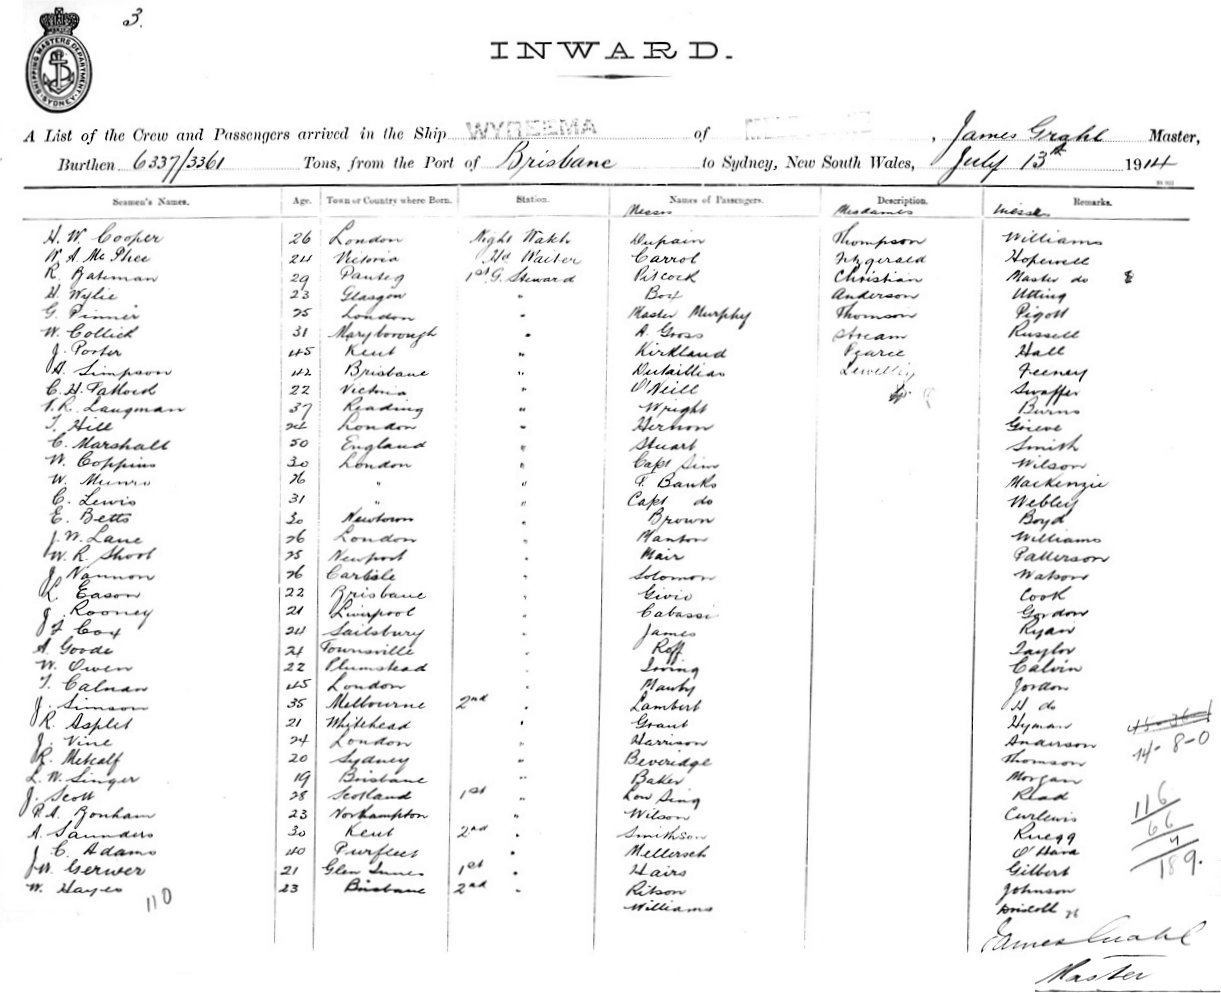 3.
SHIPPING MASTERS DEPARTMENT SYDNEY
INWARD.
A List of the Crew and Passengers arrived in the Ship WYREEMA of , James Grahl Master,
Burthen 6337/3361 Tons, from the Port of Brisbane to Sydney, New South Wales, July 13th 1914
Seamen's Names. Age. Town or Country where Born. Station. Names of Passengers. Description. Remarks.
Messrs Mesdames Misses
H. W. Cooper 26 London Night Watch Dupain Thompson Williams
W. A. McPhee 24 Victoria Hd Waiter Carrol Fitzgerald Hopewell
R. Bateman 29 Panteg 1st G. Steward Pitcock Christian Master do
H. Wylie 23 Glasgow " Box Anderson Utting
G. Pinner 25 London " Master Murphy Thomson Pigott
W. Collick 31 Maryborough " A. Gross Stream Russell
J. Porter 45 Kent " Kirkland Pearce Hall
A. Simpson 42 Brisbane " Dutaillias Feeney
C. H. 22 Victoria " O'Neill Swaffer
Laugman 37 Reading " Wright Burns
T. Hill 24 London " Hernon Grieve
C. Marshall 50 England " Stuart Smith
W. Coppins 30 London " Capt Sim Wilson
W. Munro 26 " " F. Banks Mackenzie
C. Lewis 31 " " Capt do Webley
E. Betts 30 Newtown " Brown Boyd
J. W. Lane 26 London " Manton Williams
W. R. Shoot 25 Newport " Mair Patterson
J. Vannon 26 Carlisle " Solomon Watson
L. Eason 22 Brisbane " Givio Cook
J. Rooney 21 Liverpool " Cabassi Gordon
J. F. Cox 24 Sailsbury " James Ryan
A. Goode 21 Townsville " Roff Taylor
W. Owen 22 Plumstead " Irving Calvin
T. Calnan 45 London " Manby Jordon
J. Simson 35 Melbourne 2nd " Lambert H do
R. Asplet 21 Whitehead " Grant Hyman
J. Vine 24 London " Harrison Anderson
R. Metcalf 20 Sydney " Beveridge Thomson
L. W. Singer 19 Brisbane " Baker Morgan
J. Scott 28 Scotland 1st " Low Sing Read
P. A. Bonham 23 Northampton " Wilson Curlewis
A. Saunders 30 Kent 2nd " Smithson Ruegg
J. C. Adams 40 Purfleet " Mellersch O'Hara
J. W. Gerwer 21 Glen Innes 1st " Hairs Gilbert
W. Hayes 23 Brisbane 2nd " Ritson Johnson
110 Williams Driscoll
14-8-0
116
66
189.
James Grahl
Master